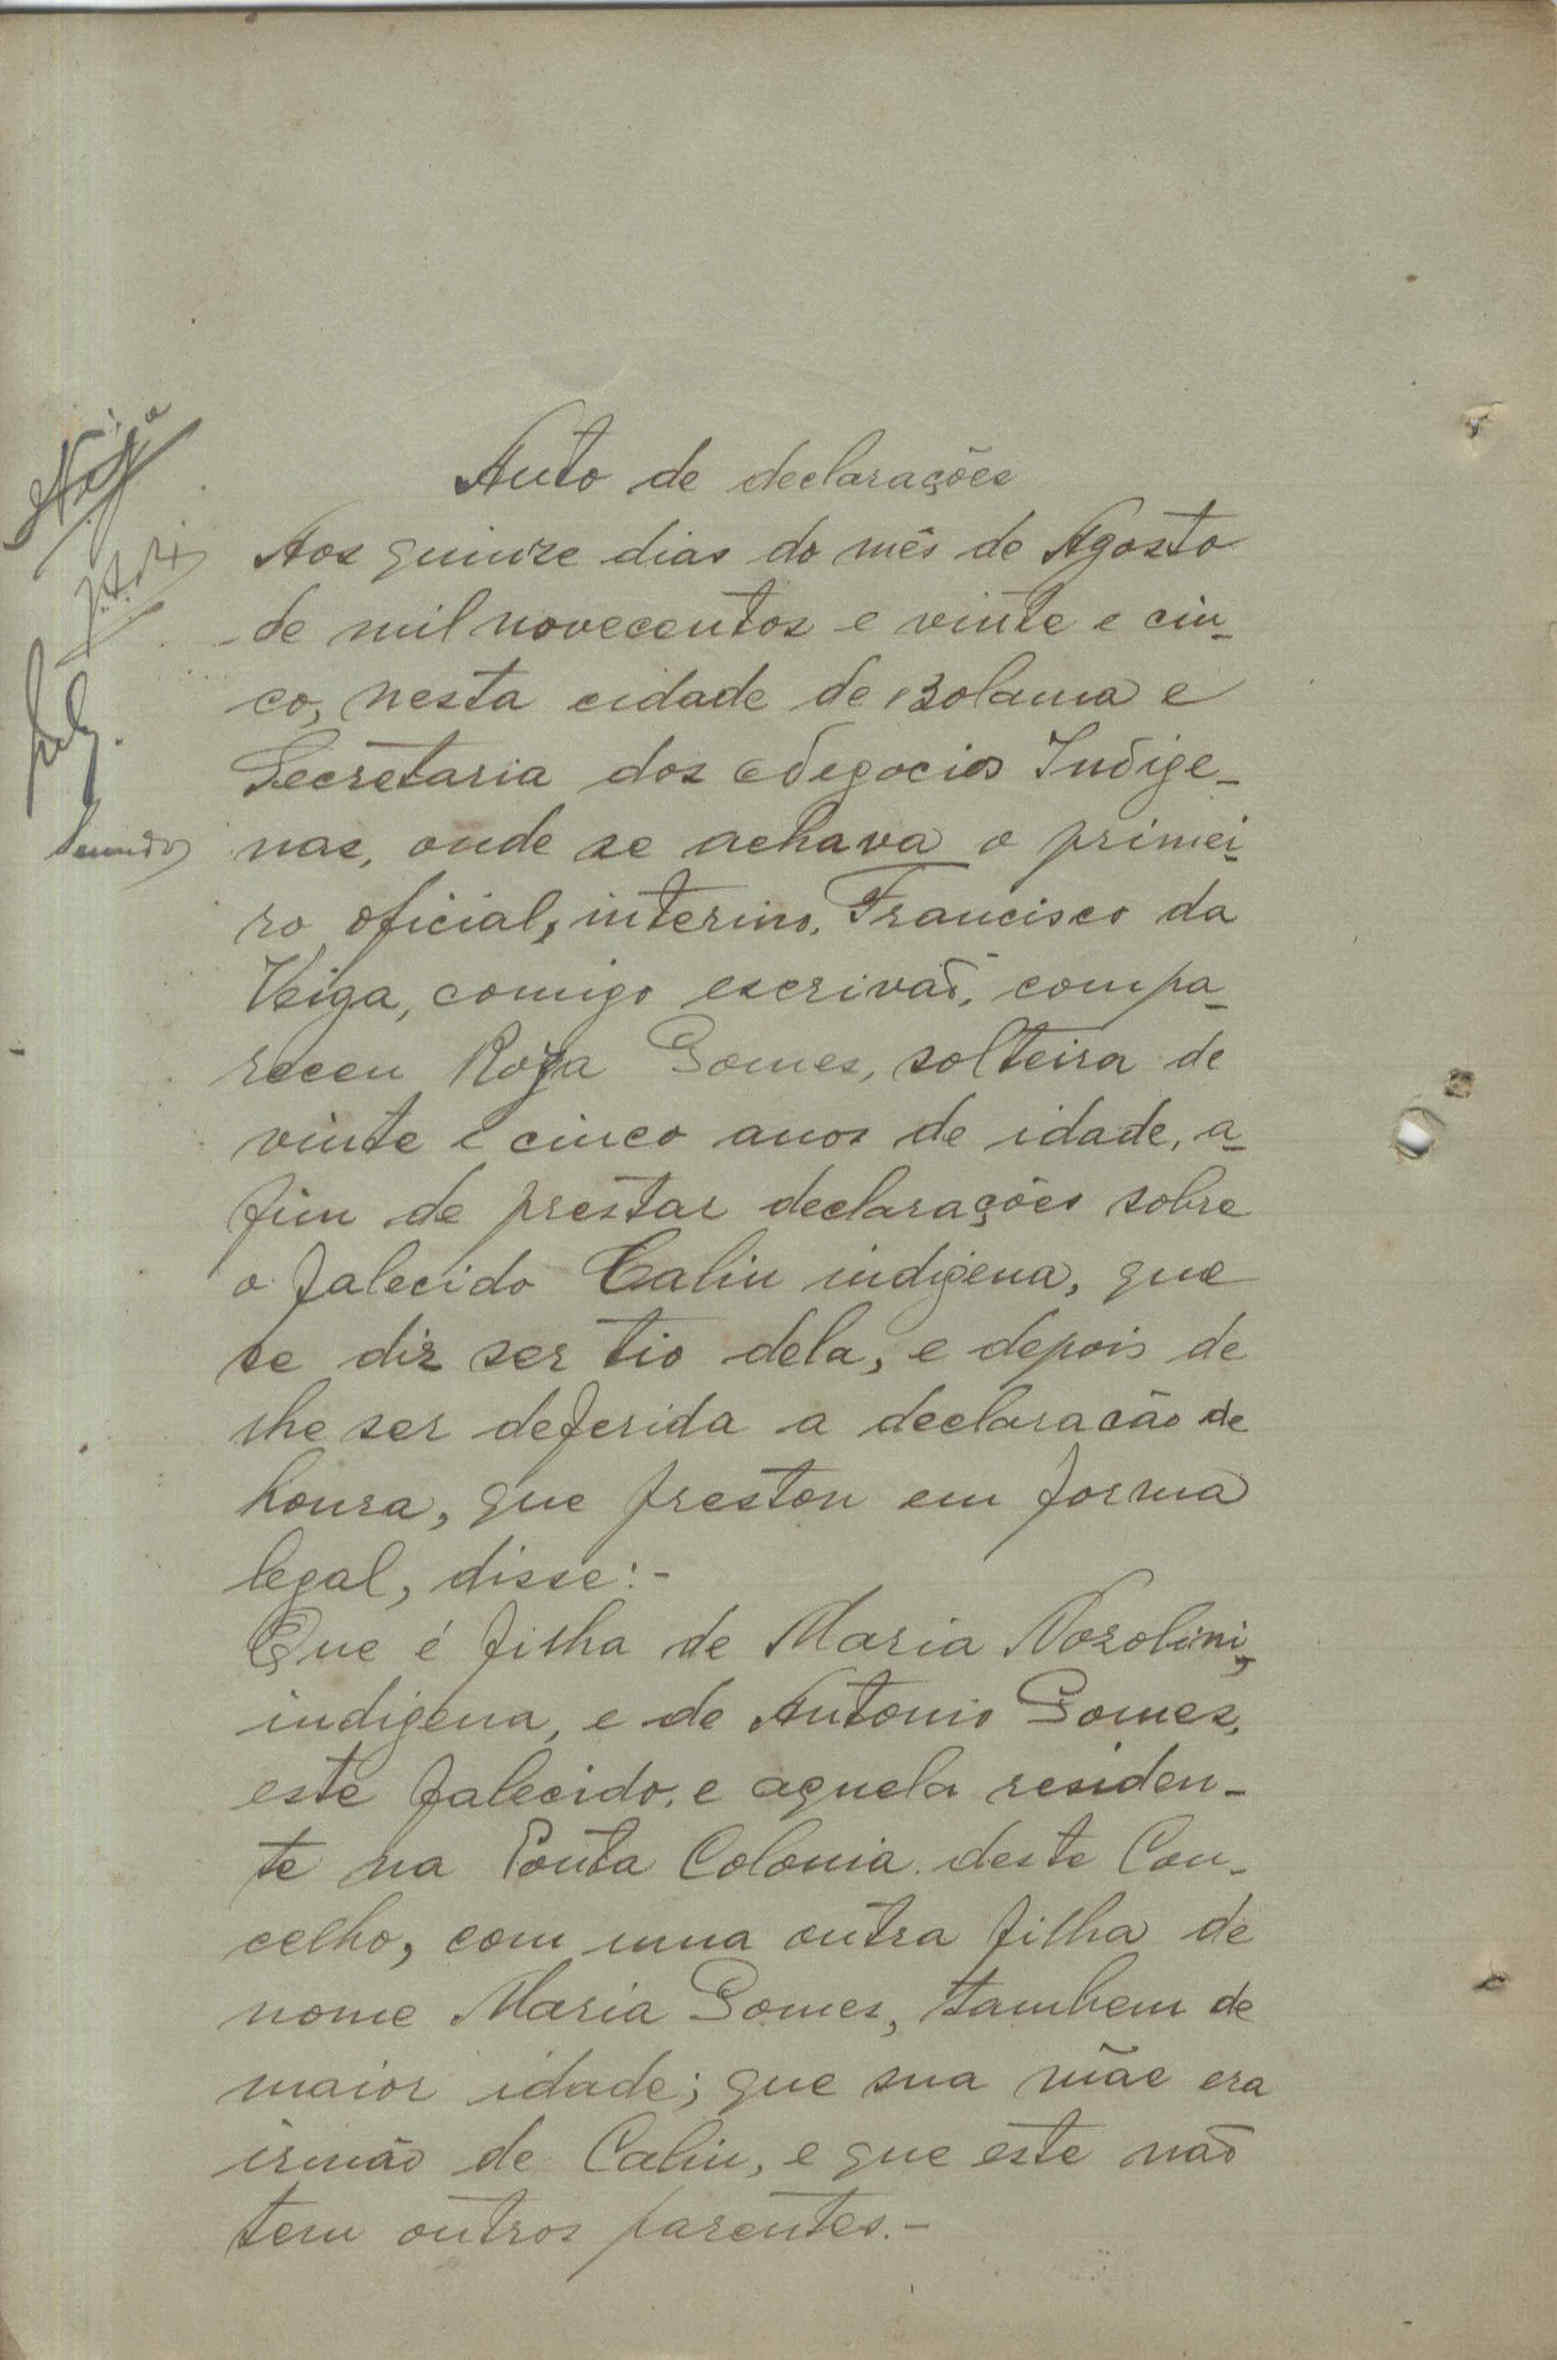 Auto de declarações
Aos quinze dias do mês de Agosto
de mil novecentos e vinte e cin-
co, nesta cidade de Bolama e
Secretaria dos Negocios Indige-
nas, onde se achava o primei-
ro oficial, interino, Francisco da
Veiga, comigo escrivão, compa-
receu Roza Gomes, solteira de
vinte e cinco anos de idade, a-
fim de prestar declarações sobre
o falecido Caliu indigena, que
se diz ser tio dela, e depois de
lhe ser deferida a declaracão de
honra, que prestou em forma
legal, disse:-
Que é filha de Maria Nozolini,
indigena, e de Antonio Gomes,
este falecido, e aquela residen-
te na Ponta Colonia deste Con-
celho, com uma outra filha de
nome Maria Gomes, tambem de
maior idade; que sua mãe era
irmão de Caliu, e que este não
tem outros parentes.-